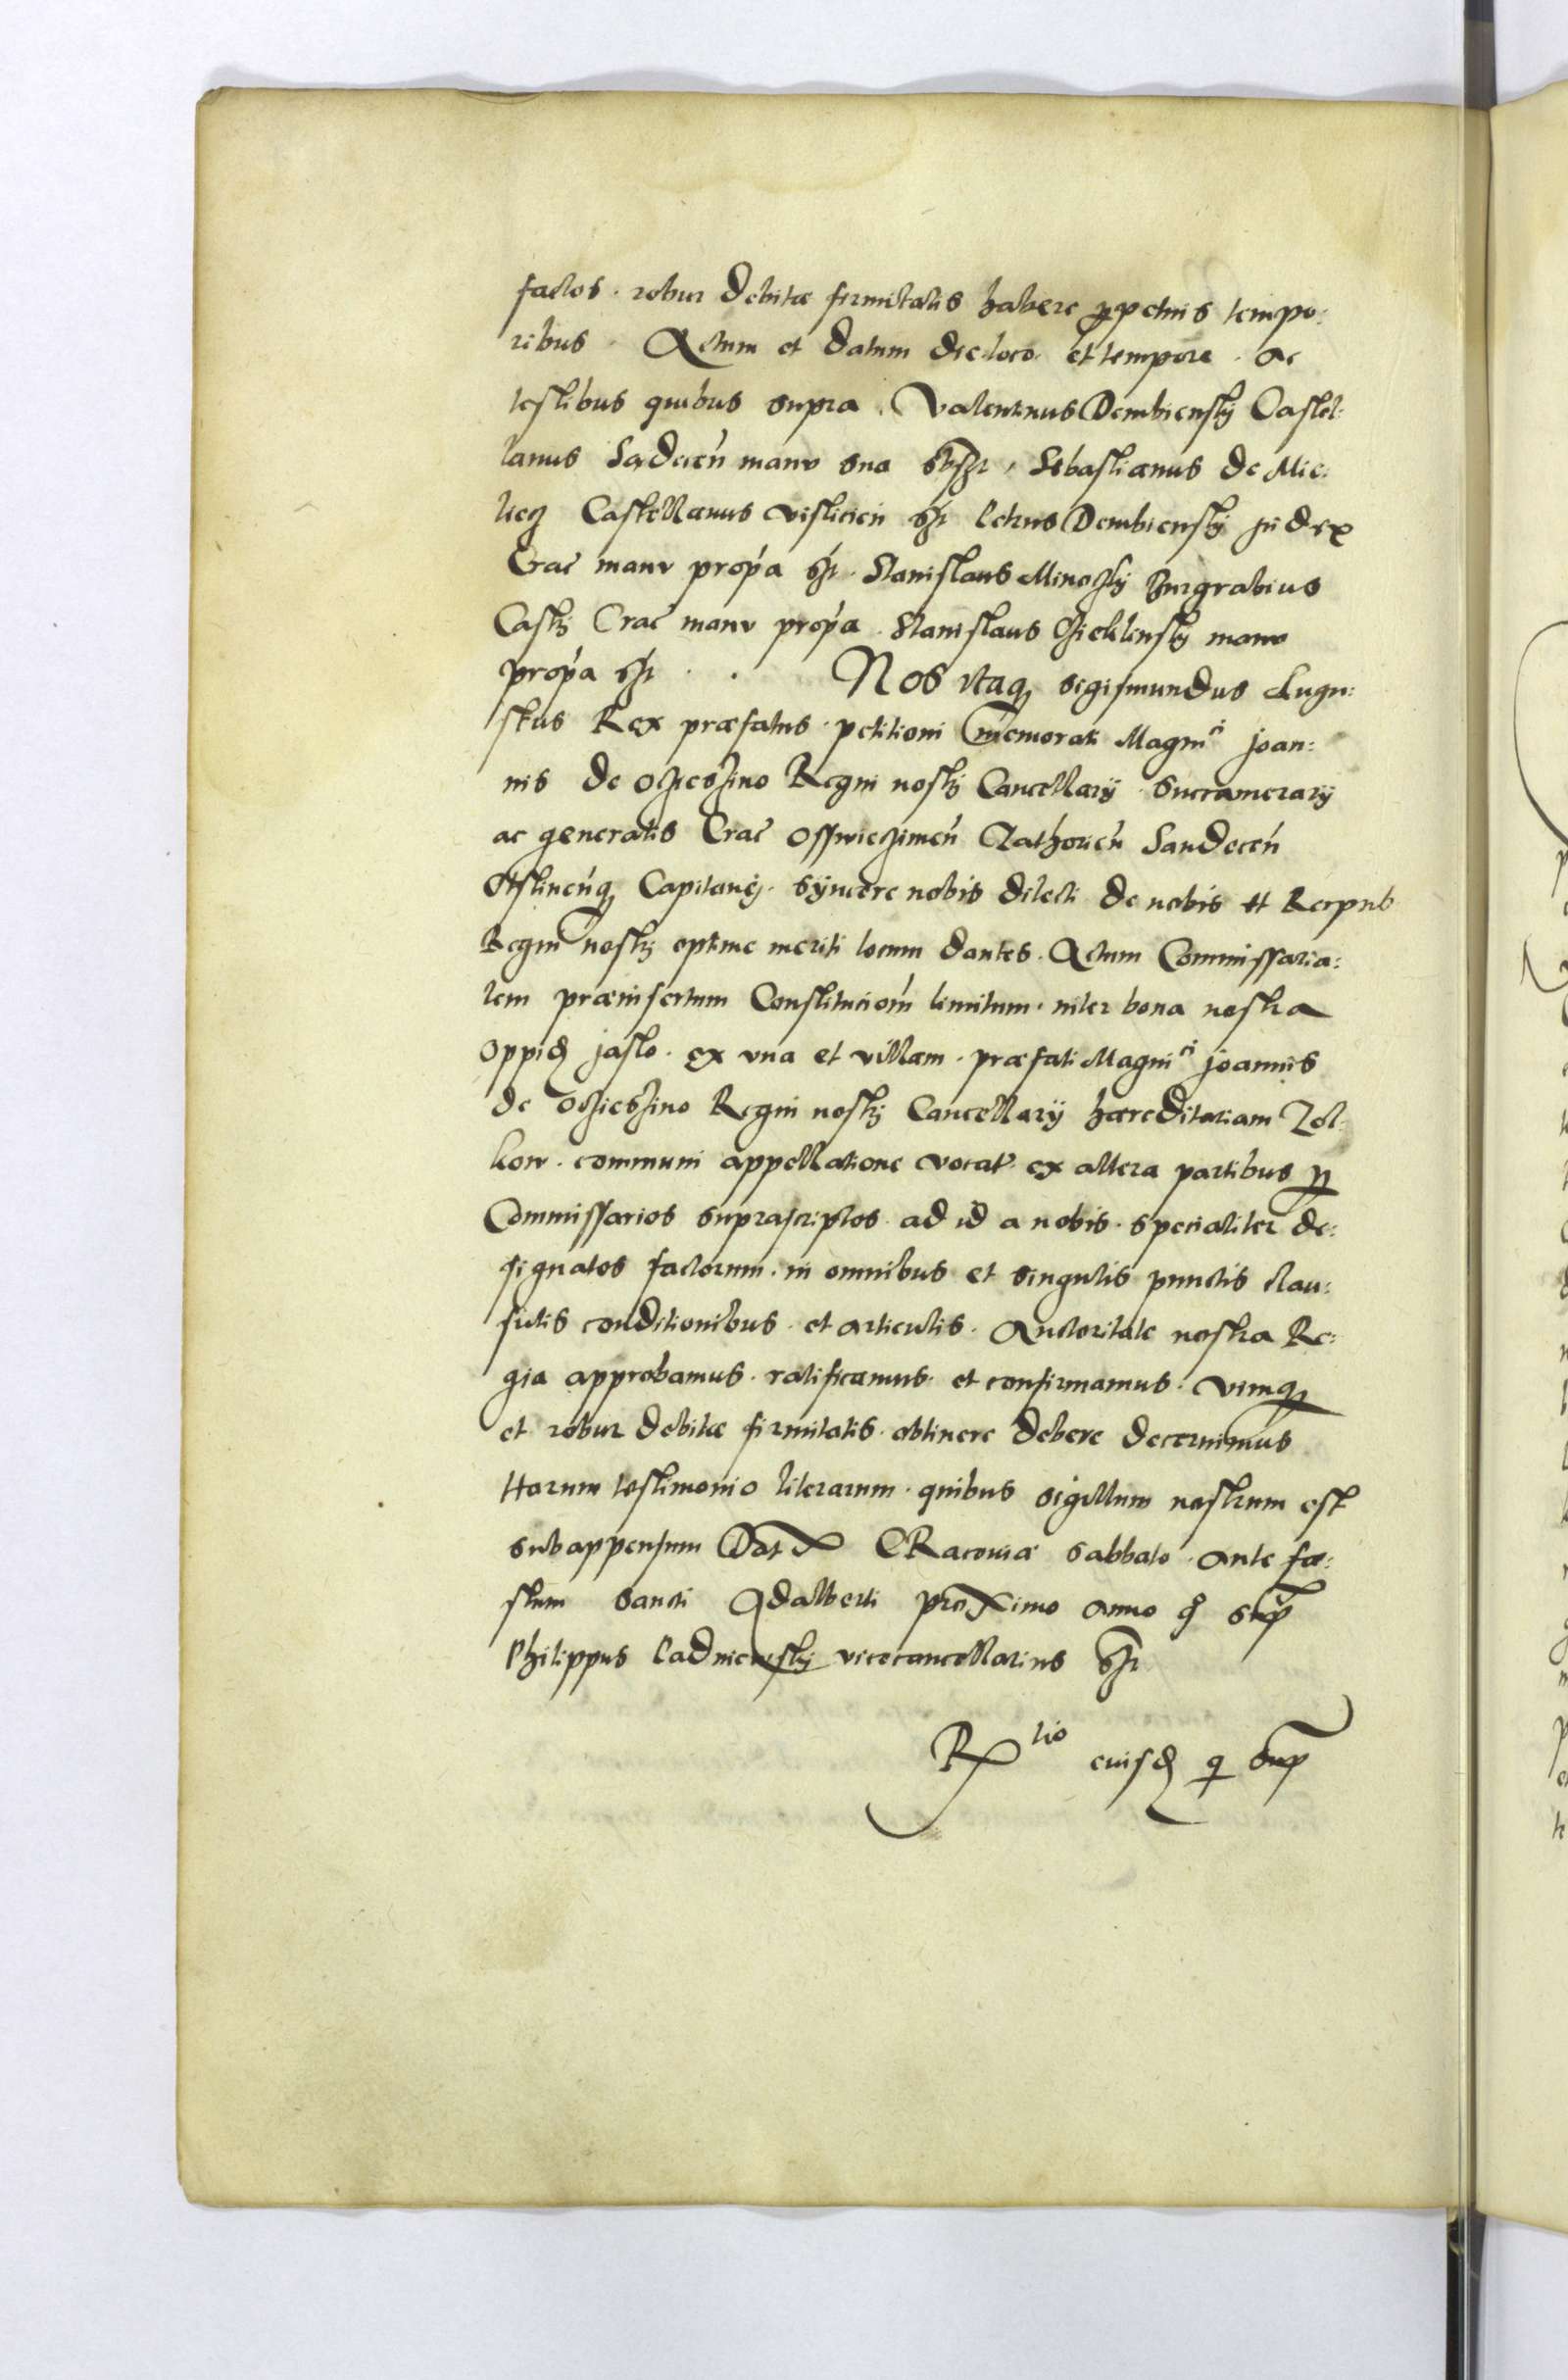 factos. robur debitæ firmitatis habere perpetuis tempo:
ribus. Actum et datum die loco. et tempore. ac
testibus quibus supra. Valentinus Dembiensky Castel:
lanus Sandecen manu sua sbsszt, Sebastianus de Mie:
lecz Castellanus Vislicien sszt Petrus Dembiensky judex
Crac manu propa sszt. Stanislaus Minoczky Burgrabius
Castri Crac manu propa. Stanislaus manu
propa sszt . . Nos itaq sigismundus Augu:
stus Rex præfatus. petitioni memorati Magnci joan:
nis de Oczieszino Regni nostri Cancellarÿ. succamerarÿ
ac generalis Crac Osswieczimen Zathorien Sandecen
Olstinenq Capitanej. sÿncere nobis dilecti de nobis et Reipub
Regni nostri optime meriti locum dantes. Actum Commissaria:
lem præinsertum Constituciom limitum. inter bona nostra
oppidj jaslo. ex vna et villam. præfati Magnci joannis
de Oczieszino Regni nostri Cancellarÿ hæreditariam Zol:
kow. communi appellatione vocat. ex altera partibus per
Commissarios suprascriptos. ad id a nobis. specialiter de:
signatos factorum. in omnibus et singulis punctis clau:
sulis conditionibus. et articulis. Auctoritate nostra Re:
gia approbamus. ratificamus. et confirmamus. vimq
et robur debitæ firmitatis. obtinere debere decernimus
Harum testimonio literarum. quibus sigillum nostrum est
subappensum Dat CRacouiæ sabbato. ante fæ:
stum sancti Adalberti proximo anno q sup
Philippus Padniewsky vicecancellarius sszt
Rtio eiusd q sup